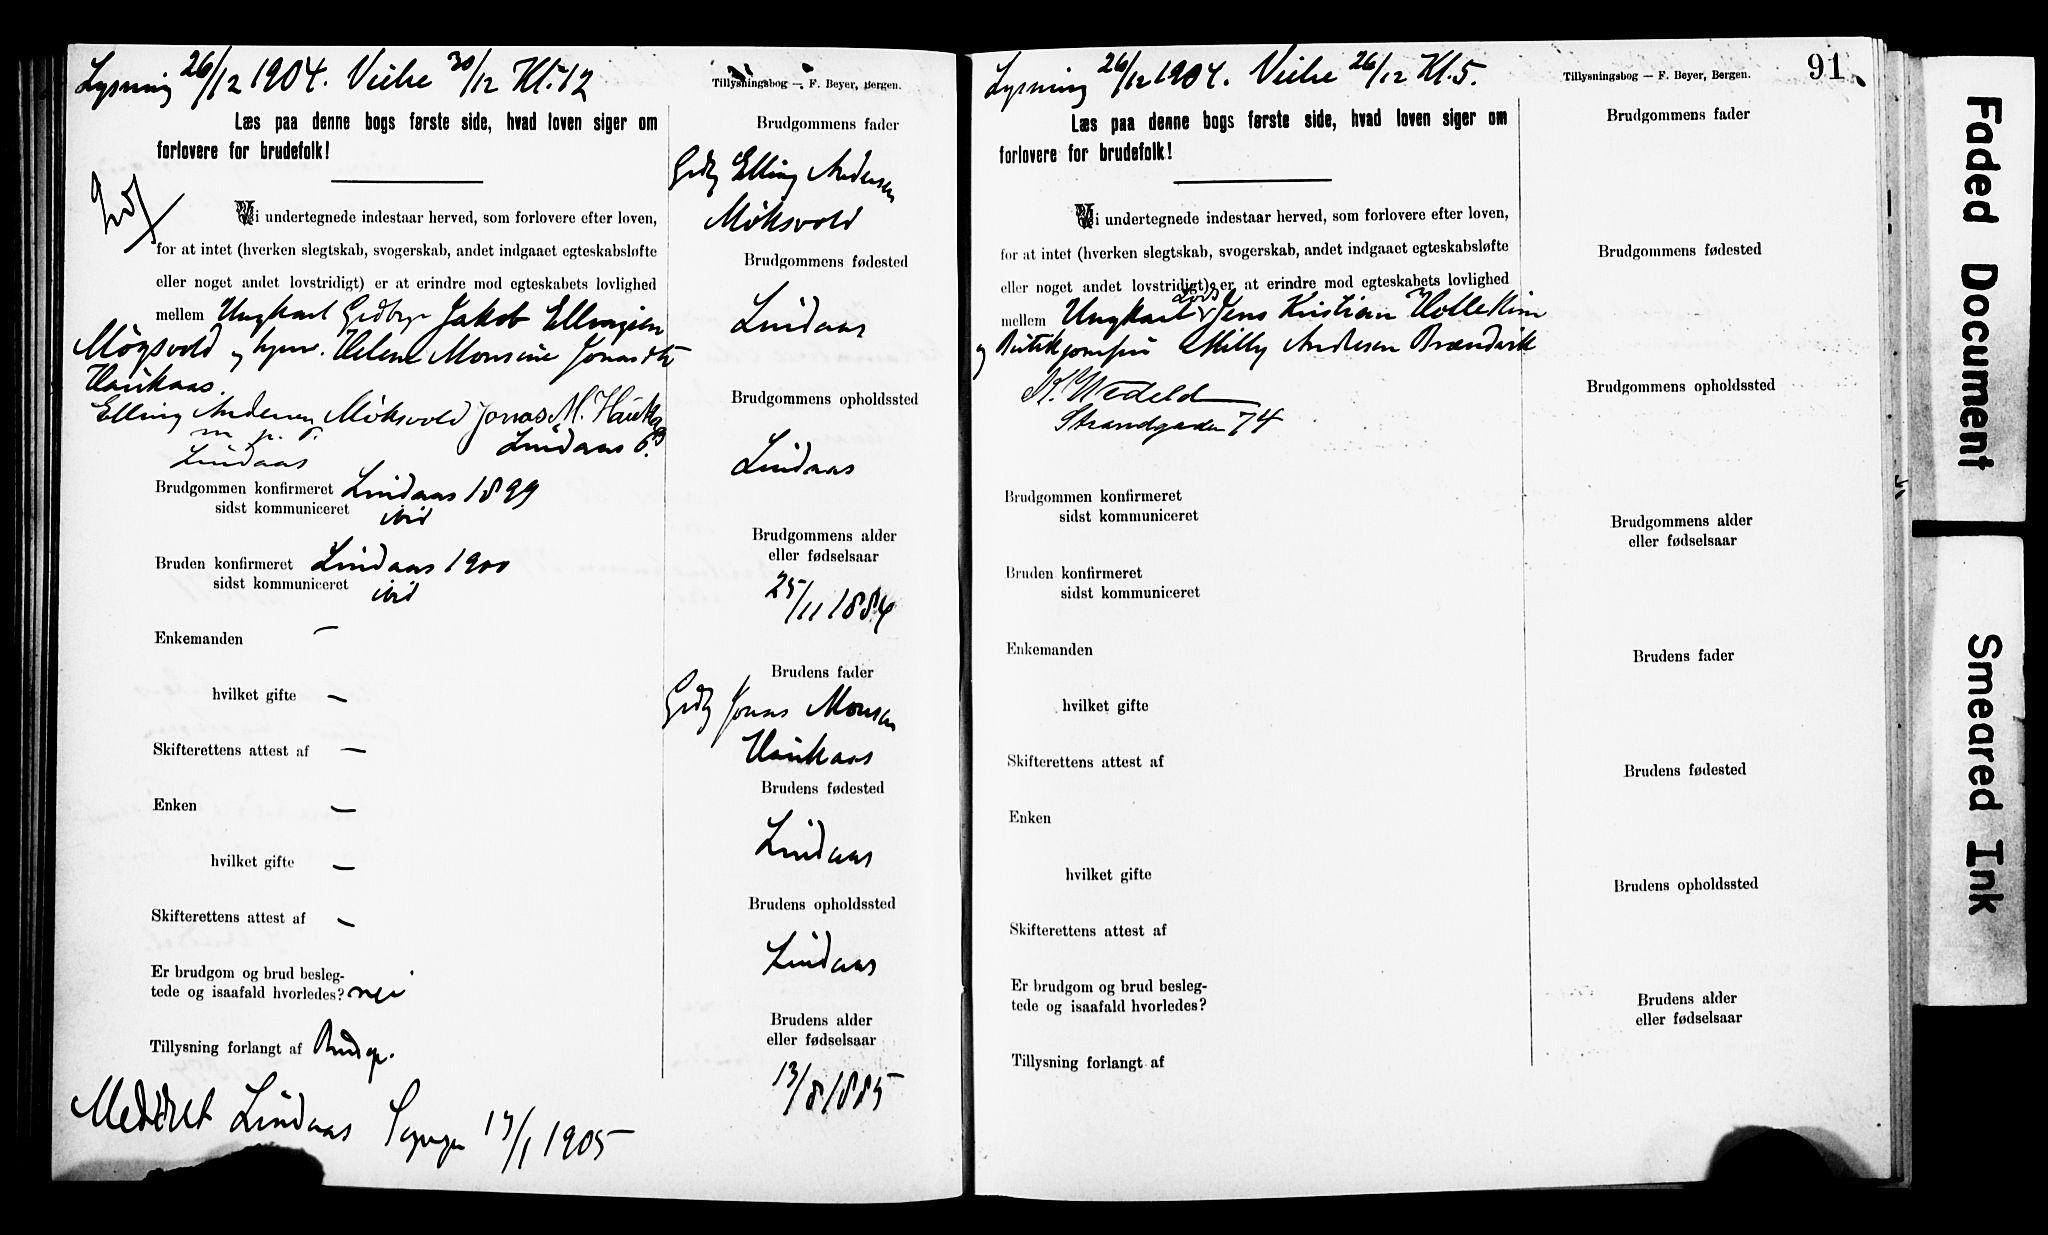 Lysning 26/12 1904. Vielse 30/12 Kl. 12
Tillysningsbog — F. Beyer, Bergen.
Læs paa denne bogs første side, hvad loven siger om
forlovere for brudefolk!
Vi undertegnede indestaar herved, som forlovere efter loven,
for at intet (hverken slegtskab, svogerskab, andet indgaaet egteskabsløfte
eller noget andet lovstridigt) er at erindre mod egteskabets lovlighed
mellem Ungkarl Gedbgr Jakob Ellingsen
Mögsvold og hjmv. Helene Monsine Jonasdtr
Haukaas.
Elling Andersen Møksvold Jonas M. Haukaas
m. p. P. Lindaas
Lindaas
Brudgommen konfirmeret Lindaas 1899
sidst kommuniceret ibid
Bruden konfirmeret Lindaas 1900
sidst kommuniceret ibid
Enkemanden —
hvilket gifte —
Skifterettens attest af —
Enken —
hvilket gifte —
Skifterettens attest af —
Er brudgom og brud besleg-
tede og isaafald hvorledes? nei
Tillysning forlangt af Brudg.
Meddelt Lindaas Sogn 17/1 1905
Brudgommens fader
Gdbg Elling Andersen
Møksvold
Brudgommens fødested
Lindaas
Brudgommens opholdssted
Lindaas
Brudgommens alder
eller fødselsaar
25/11 1884
Brudens fader
Gdbg Jonas Monsen
Haukaas
Brudens fødested
Lindaas
Brudens opholdssted
Lindaas
Brudens alder
eller fødselsaar
13/8 1885
Lysning 26/12 1904. Vielse 26/12 Kl. 5.
Tillysningsbog — F. Beyer, Bergen.
91
Læs paa denne bogs første side, hvad loven siger om
forlovere for brudefolk!
Vi undertegnede indestaar herved, som forlovere efter loven,
for at intet (hverken slegtskab, svogerskab, andet indgaaet egteskabsløfte
eller noget andet lovstridigt) er at erindre mod egteskabets lovlighed
mellem Ungkarl Lods Jens Kristian Hollekim
og Butikjomfru Milly Andrea Brændvik
K. Wedeld
Strandgaden 74
Brudgommen konfirmeret
sidst kommuniceret
Bruden konfirmeret
sidst kommuniceret
Enkemanden
hvilket gifte
Skifterettens attest af
Enken
hvilket gifte
Skifterettens attest af
Er brudgom og brud besleg-
tede og isaafald hvorledes?
Tillysning forlangt af
Brudgommens fader
Brudgommens fødested
Brudgommens opholdssted
Brudgommens alder
eller fødselsaar
Brudens fader
Brudens fødested
Brudens opholdssted
Brudens alder
eller fødselsaar
Faded Document
Smeared Ink